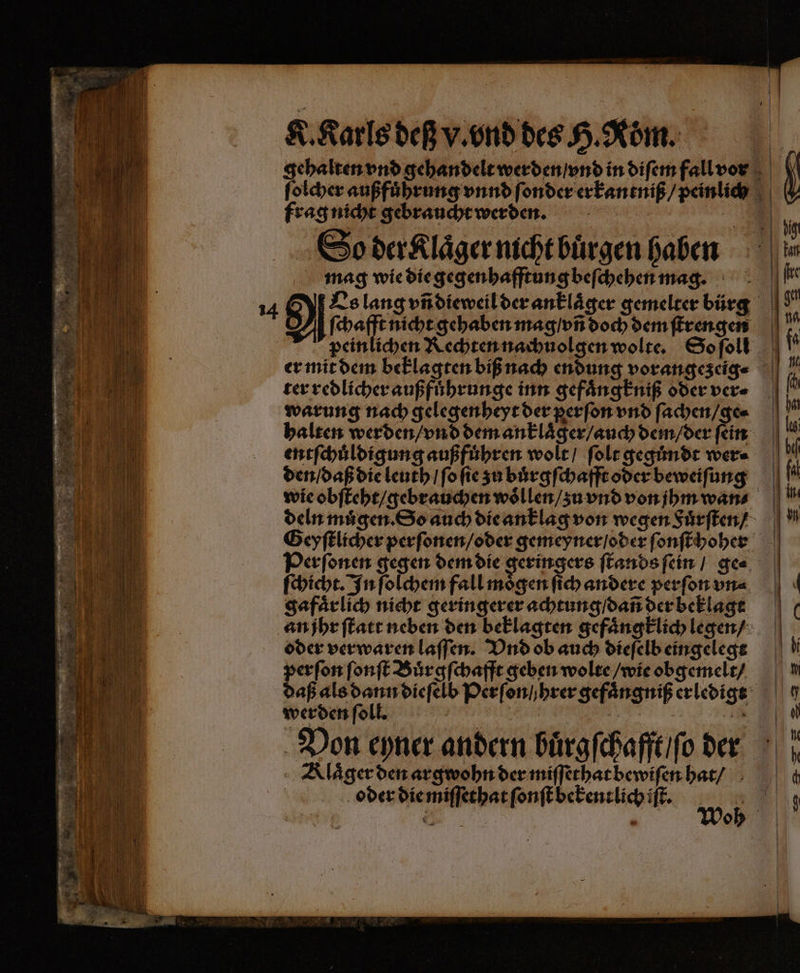 K. Karls deß v. vnd des H. Röm.
gehalten vnd gehandelt werden/vnd in diſem fall vor
ſolcher außfuͤhrung vnnd ſonder erkantniß / peinlich
frag nicht gebraucht werden.
So der Klaͤger nicht buͤrgen haben
mag wie die gegenhafftung beſchehen mag.
14 ALs lang vñ dieweil der anklaͤger gemelter buͤrg
ſchafft nicht gehaben mag/vñ doch dem ſtrengen
peinlichen Rechten nachuolgen wolte. So ſoll
er mit dem beklagten biß nach endung vorangezeig⸗
ter redlicher außfuͤhrunge inn gefaͤngkniß oder ver⸗
warung nach gelegenheyt der perſon vnd ſachen/ge⸗
halten werden/vnd dem anklaͤger/auch dem/der ſein
entſchuͤldigung außfuͤhren wolt/ ſolt geguͤndt wer⸗
den/daß die leuth / ſo ſie zu buͤrgſchafft oder beweiſung
wie obſteht/gebrauchen woͤllen/zu vnd von jhm wan⸗
deln muͤgen. So auch die anklag von wegen Fuͤrſten/
Geyſtlicher perſonen/oder gemeyner/oder ſonſt hoher
Perſonen gegen dem die geringers ſtands ſein / ge⸗
ſchicht. In ſolchem fall moͤgen ſich andere perſon vn⸗
gafaͤrlich nicht geringerer achtung/dañ der beklagt
an jhr ſtatt neben den beklagten gefaͤngklich legen/
oder verwaren laſſen. Vnd ob auch dieſelb eingelegt
perſon ſonſt Buͤrgſchafft geben wolte /wie obgemelt/
daß als dann dieſelb Perſon/jhrer gefaͤngniß erledigt
werden ſoll.
Von eyner andern buͤrgſchafft/ſo der
Klaͤger den argwohn der miſſethat bewiſen hat/
oder die miſſethat ſonſt bekentlich iſt.
Woh